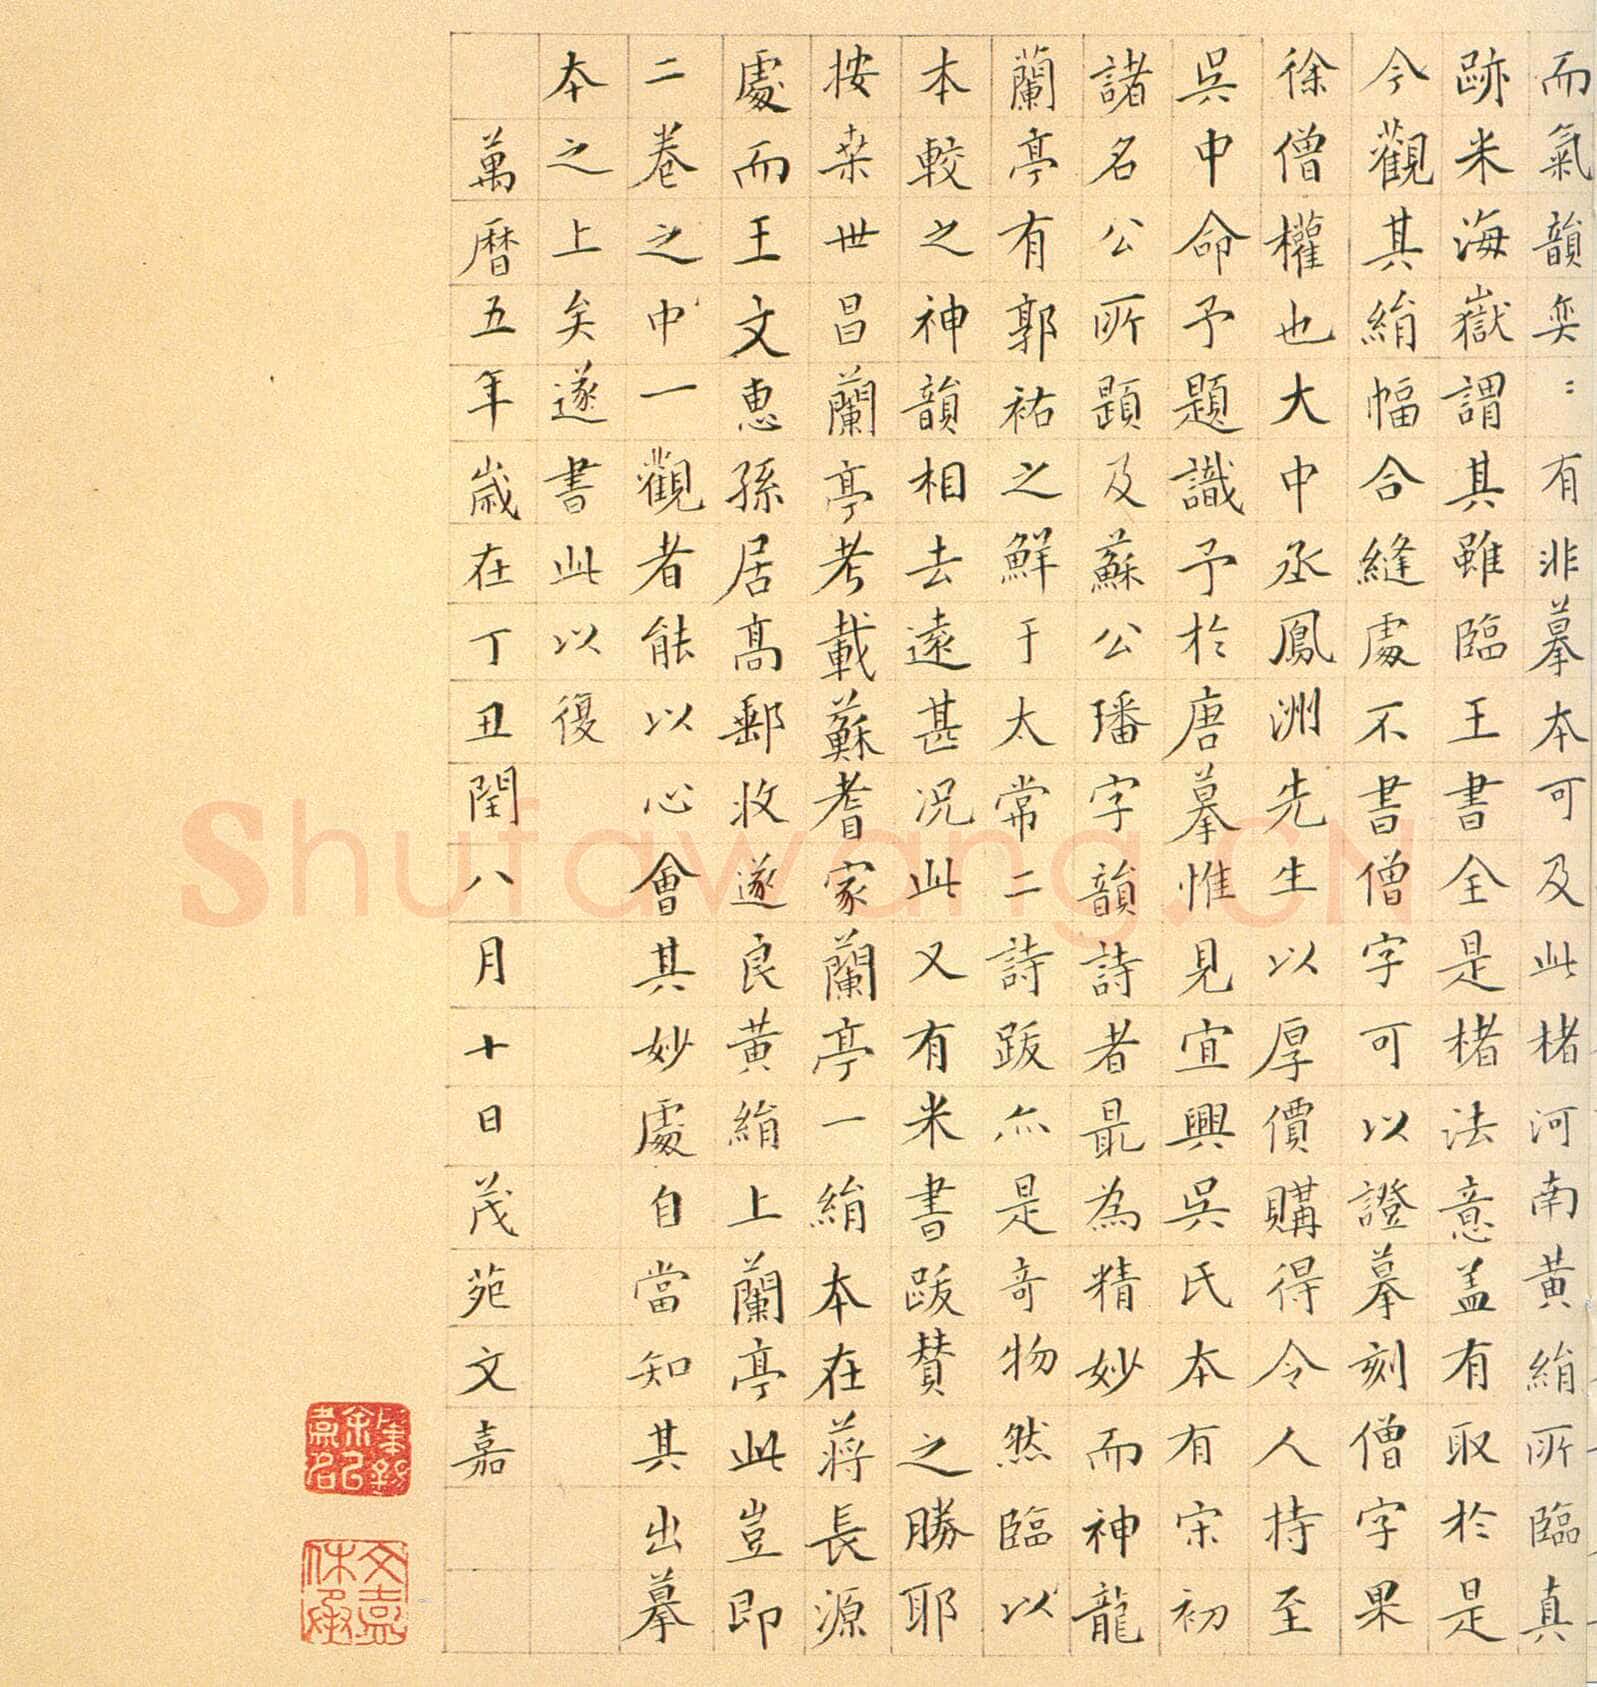 而氣韻奕〻有非摹本可及此楮河南黃絹所臨真
跡米海嶽謂其雖臨王書全是楮法意盖有取於是
今觀其絹幅合縫處不書僧字可以證摹刻僧字果
徐僧權也大中丞鳳洲先生以厚價購得令人持至
吳中命予題識予於唐摹惟見宜興吳氏本有宋初
諸名公所題及蘇公璠字韻詩者最為精妙而神龍
蘭亭有郭祐之鮮于太常二詩跋亦是奇物然臨以
本較之神韻相去遠甚况此又有米書跋賛之勝耶
按桒世昌蘭亭考載蘇耆家蘭亭一絹本在蔣長源
處而王文惠孫居高郵收遂良黃絹上蘭亭此豈即
二卷之中一觀者能以心會其妙處自當知其出摹
本之上矣遂書此以復
萬曆五年歲在丁丑閏八月十日茂苑文嘉
肇錫余以嘉名
文嘉休承
shufawang.CN